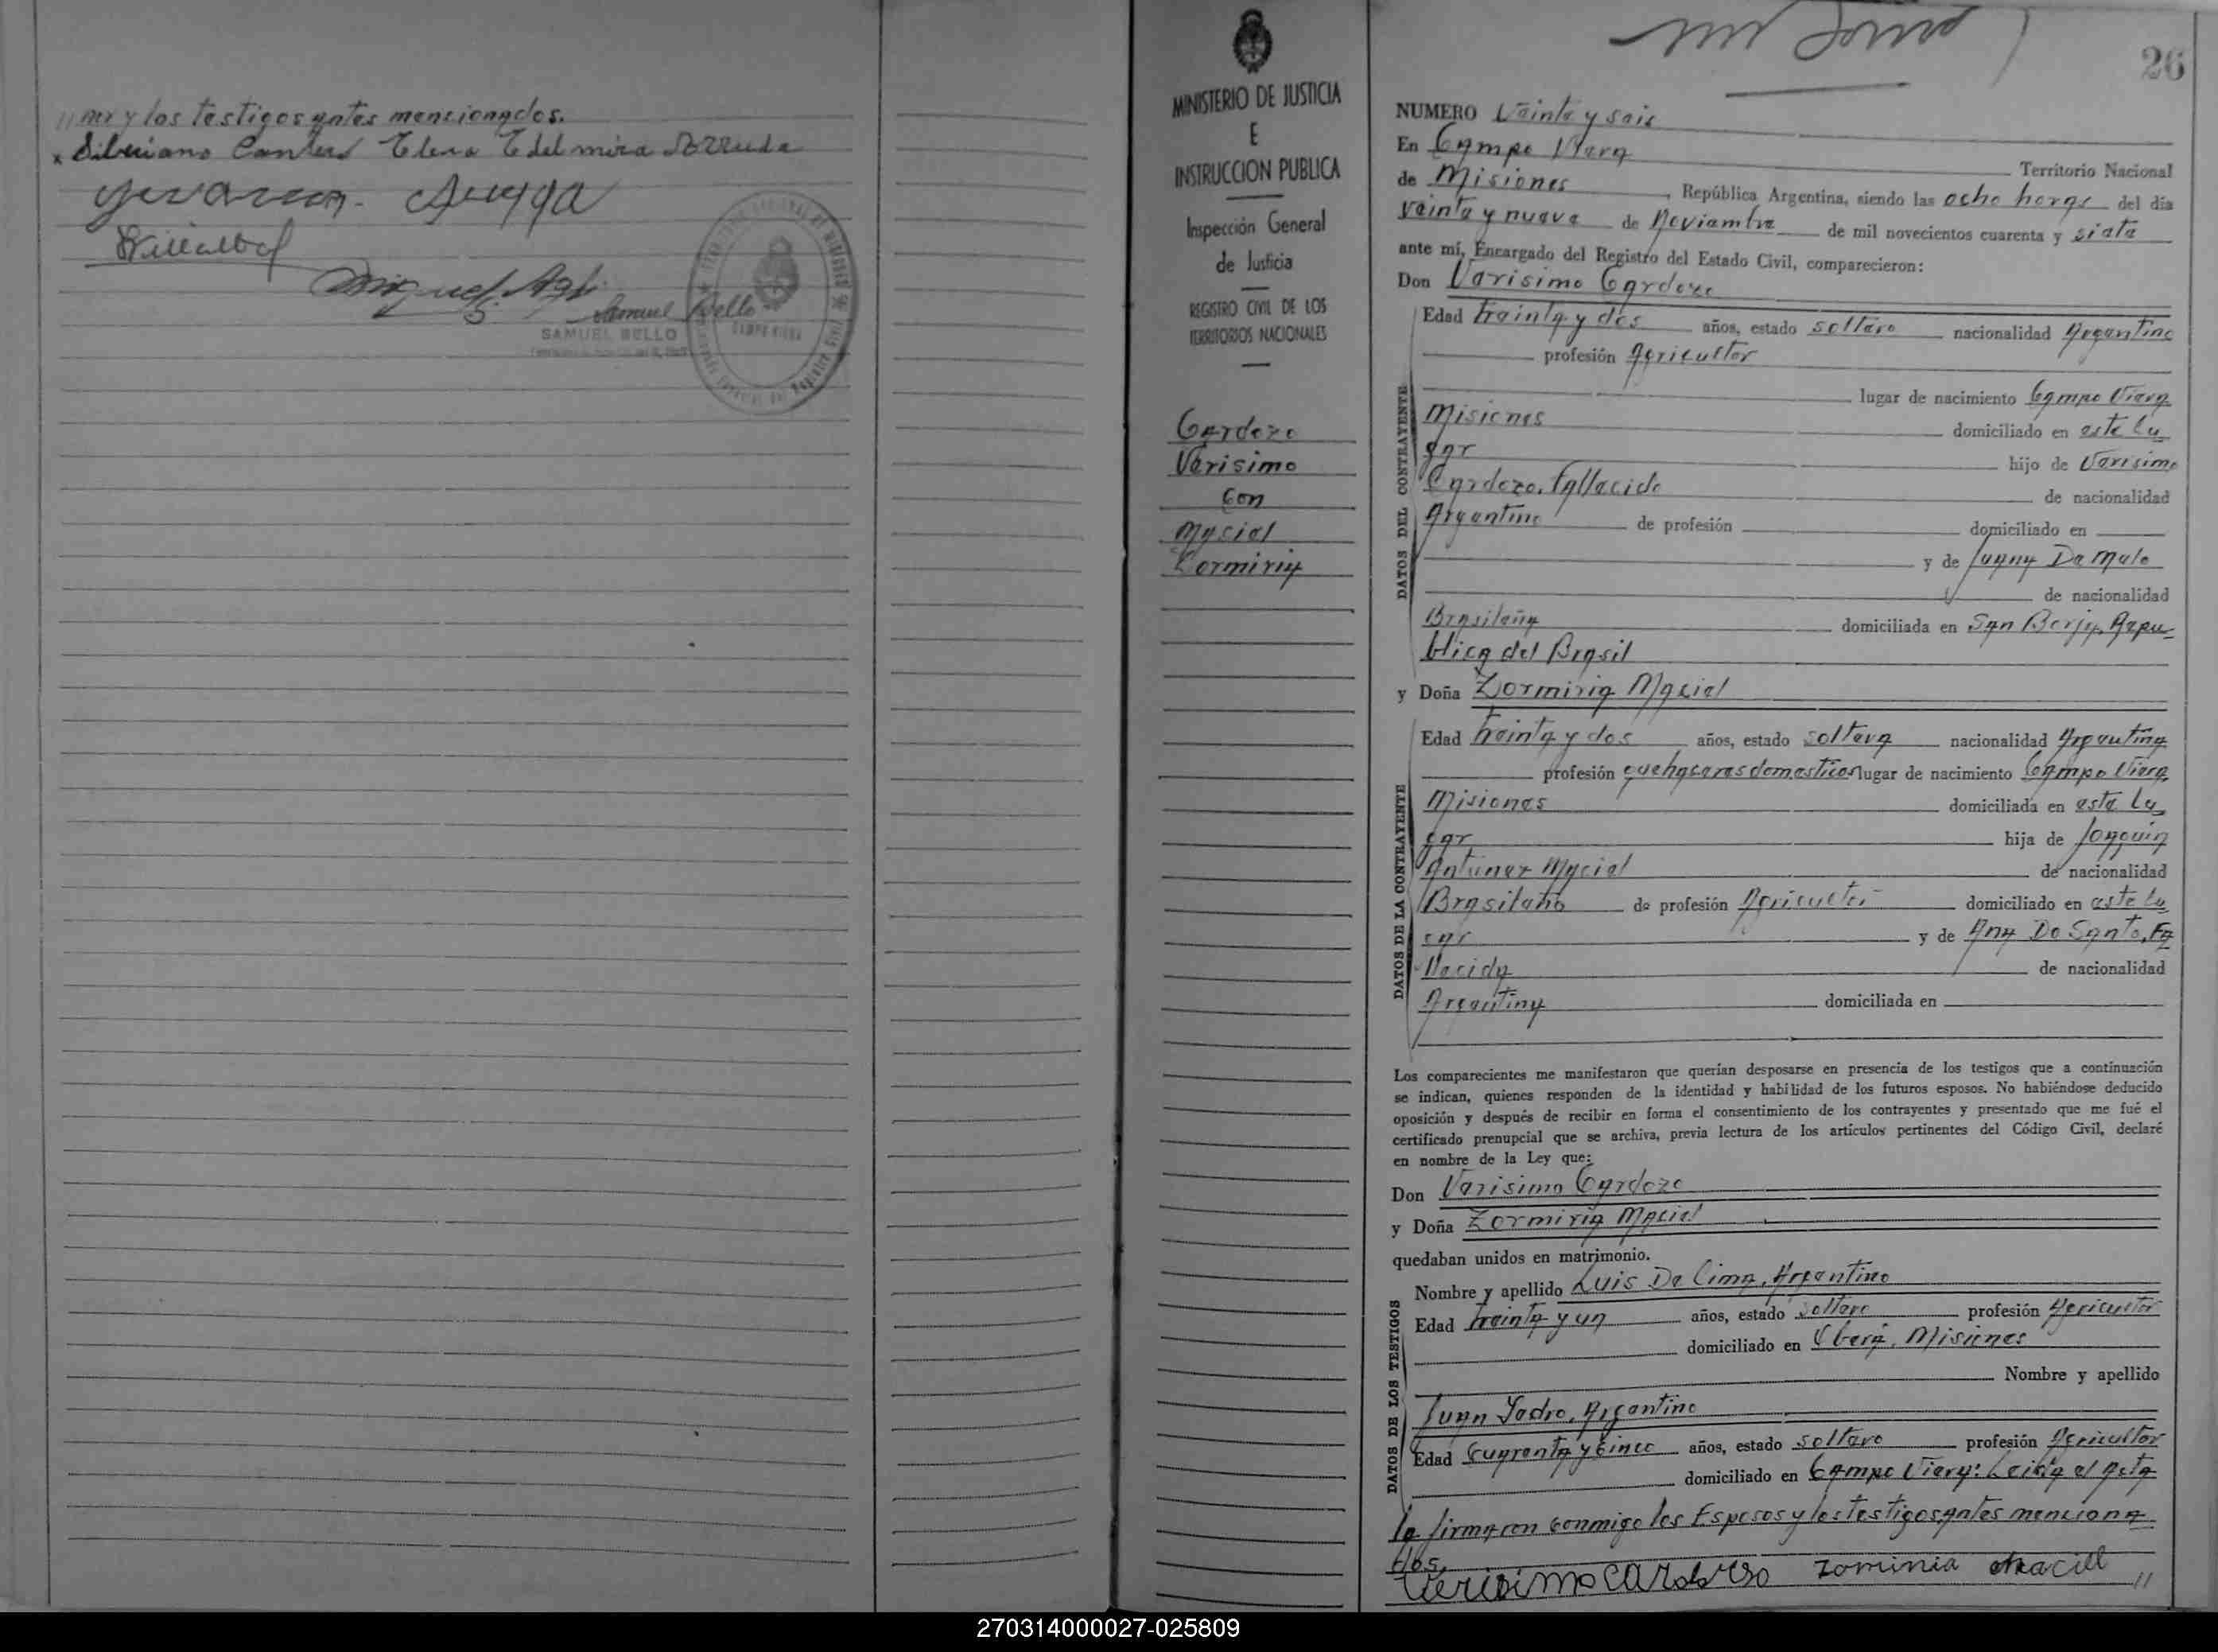 mi y los testigos antes mencionados.
Elena Edelmira
Villalba
Samuel Bello
SAMUEL BELLO
MINISTERIO DE JUSTICIA
E
INSTRUCCION PUBLICA
Inspección General
de Justicia
REGISTRO CIVIL DE LOS
TERRITORIOS NACIONALES
Cardozo
Verisimo
con
Maciel
Zormiria
26
NUMERO Veinte y seis
En Campo Viera Territorio Nacional
de Misiones, República Argentina, siendo las ocho horas del día
veinte y nueve de Noviembre de mil novecientos cuarenta y siete
ante mí, Encargado del Registro del Estado Civil, comparecieron:
Don Verisimo Cardozo
Edad treinta y dos años, estado soltero nacionalidad Argentino
profesión Agricultor
lugar de nacimiento Campo Viera
Misiones domiciliado en este lu
gar hijo de Verisimo
Cardozo, Fallecido de nacionalidad
Argentino de profesión domiciliado en
y de Juana De Melo
de nacionalidad
Brasileña domiciliada en San Borja, Repu
blica del Brasil
y Doña Zormiria Maciel
Edad treinta y dos años, estado soltera nacionalidad Argentina
profesión quehaceres domesticos lugar de nacimiento Campo Viera
Misiones domiciliada en este lu
gar hija de Joaquin
Antunez Maciel de nacionalidad
Brasileño de profesión Agricultor domiciliado en este lu
gar y de Ana Do Santo, Fa
llecida de nacionalidad
Argentina domiciliada en
Los comparecientes me manifestaron que querían desposarse en presencia de los testigos que a continuación
se indican, quienes responden de la identidad y habilidad de los futuros esposos. No habiéndose deducido
oposición y después de recibir en forma el consentimiento de los contrayentes y presentado que me fué el
certificado prenupcial que se archiva, previa lectura de los artículos pertinentes del Código Civil, declaré
en nombre de la Ley que:
Don Verisimo Cardozo
y Doña Zormiria Maciel
quedaban unidos en matrimonio.
Nombre y apellido Luis De Lima, Argentino
Edad treinta y un años, estado soltero profesión Agricultor
domiciliado en Oberá, Misiones
Nombre y apellido
Juan Argentino
Edad cuarenta y cinco años, estado soltero profesión Agricultor
domiciliado en Campo Viera: Leida el acta
la firmaron conmigo los Esposos y los testigos antes menciona
dos.
Zominia Maciel
DATOS DEL CONTRAYENTE
DATOS DE LA CONTRAYENTE
DATOS DE LOS TESTIGOS
270314000027-025809